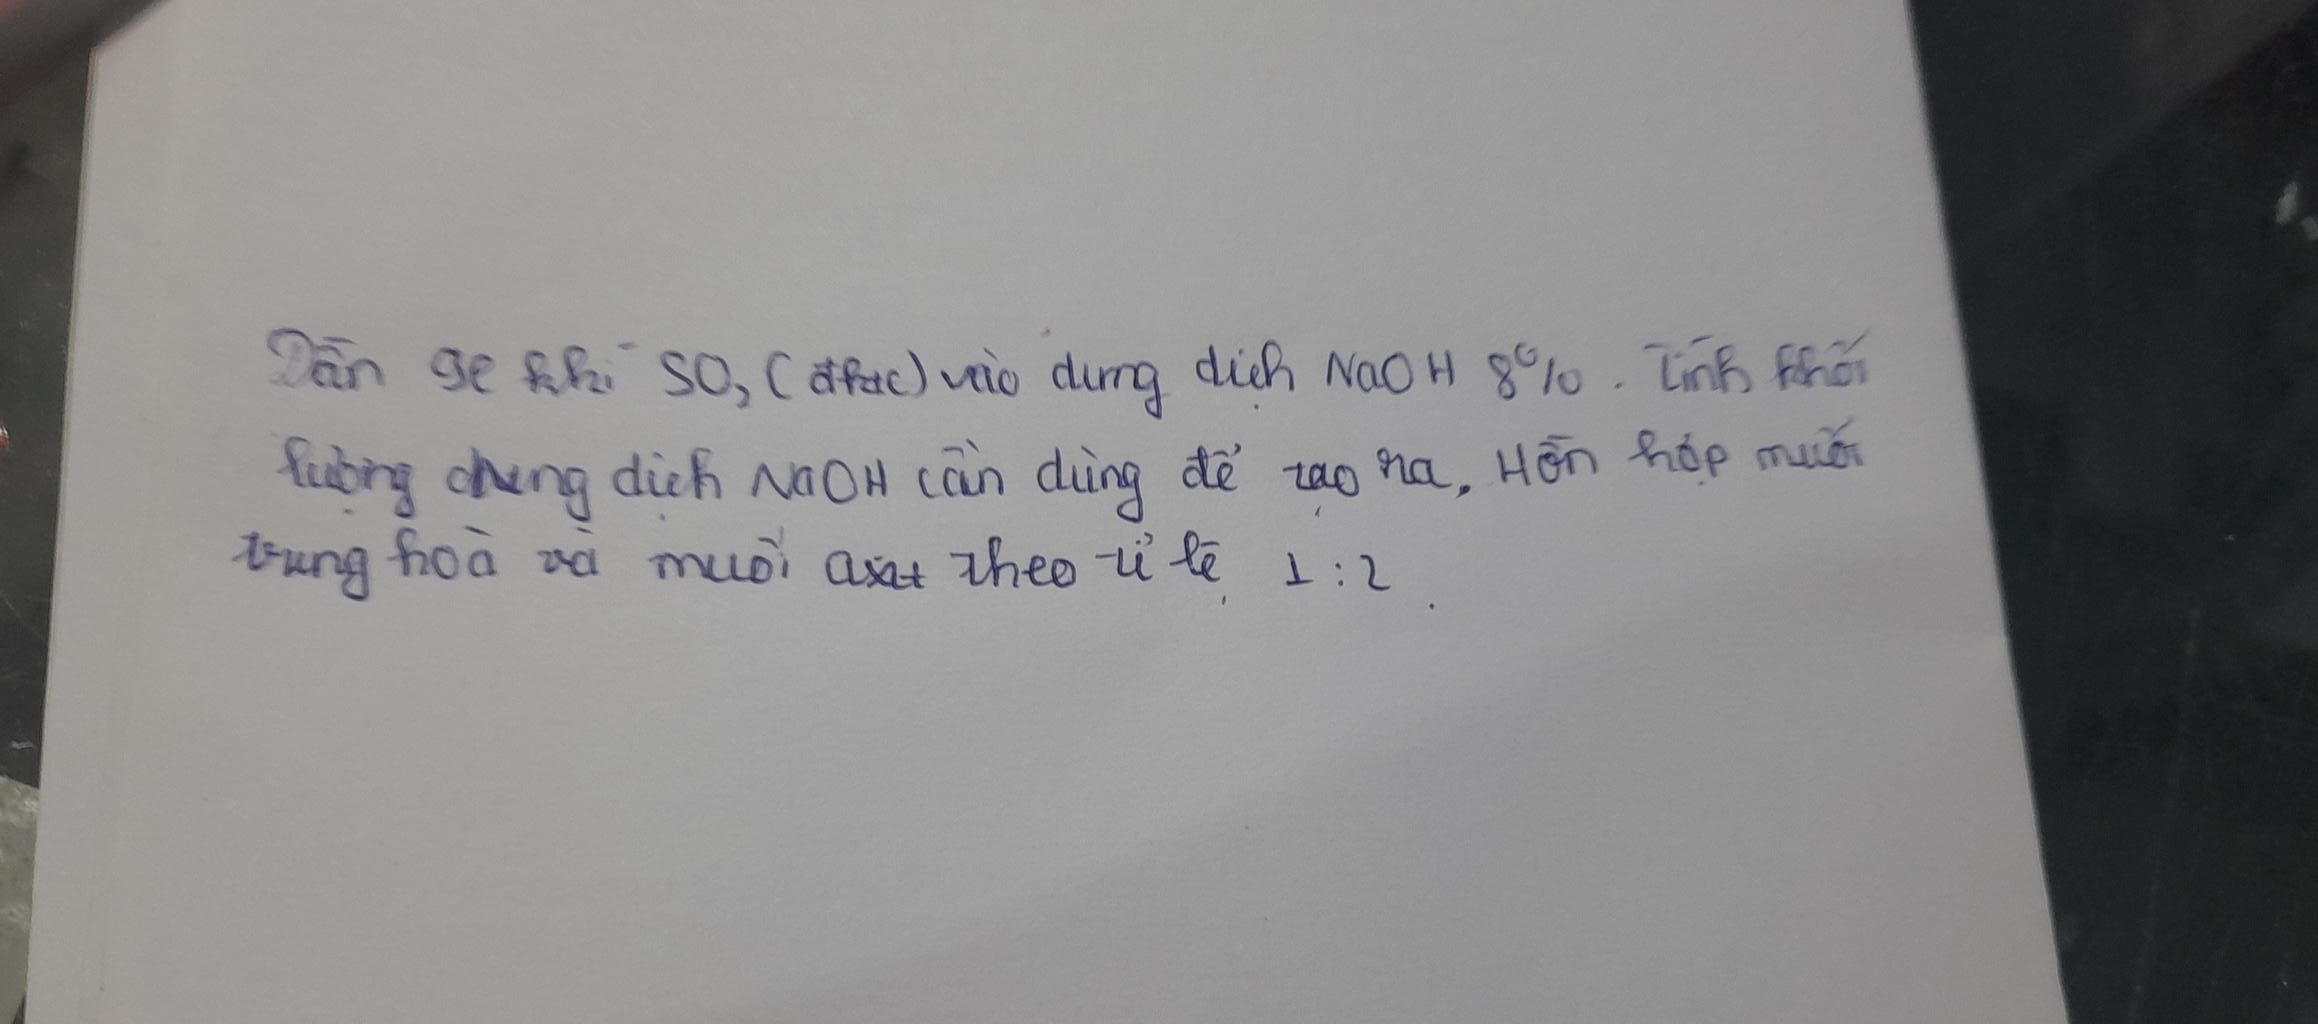 Dẫn 9l khí SO₂ (đktc) vào dung dịch NaOH 8%. Tính khối
lượng dung dịch NaOH cần dùng để tạo ra, Hỗn hợp muối
trung hoà và muối axit theo tỉ lệ 1:2.